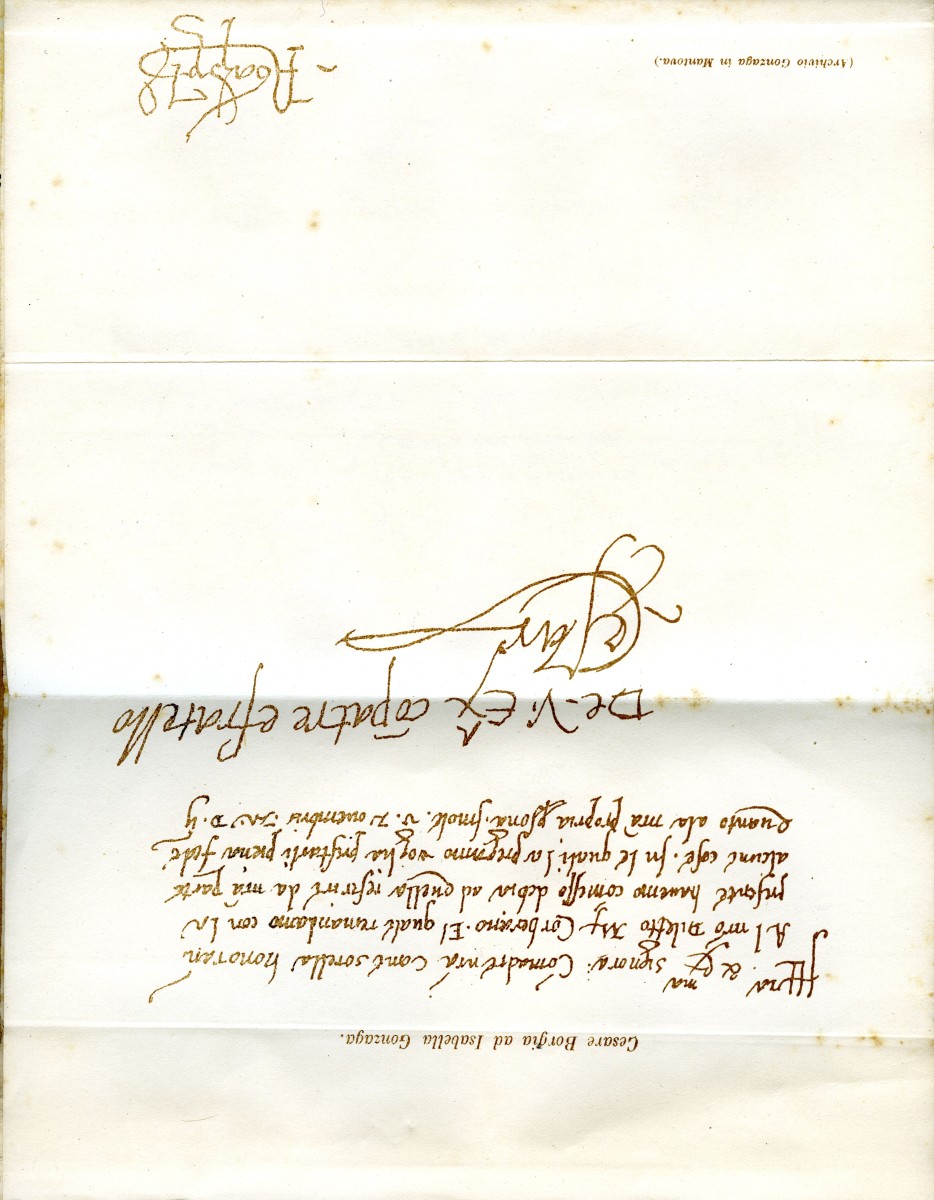 Cesare Borgia ad Isabella Gonzaga.
Illra & Ex.ma Signora: Comadre nra Care sorella honoran
Al nro Diletto M. . El quale remandamo con la
presente havemo comesso debia ad quella referire da nra parte
alcune cose. In le quali la pregamo voglia prestarli piena fede
Quanto ala nra propria psona. Imole. V. Novembris. D. ij
De. V. Ex. copatre e fratello
Cesar
(Archivio Gonzaga in Mantova.)